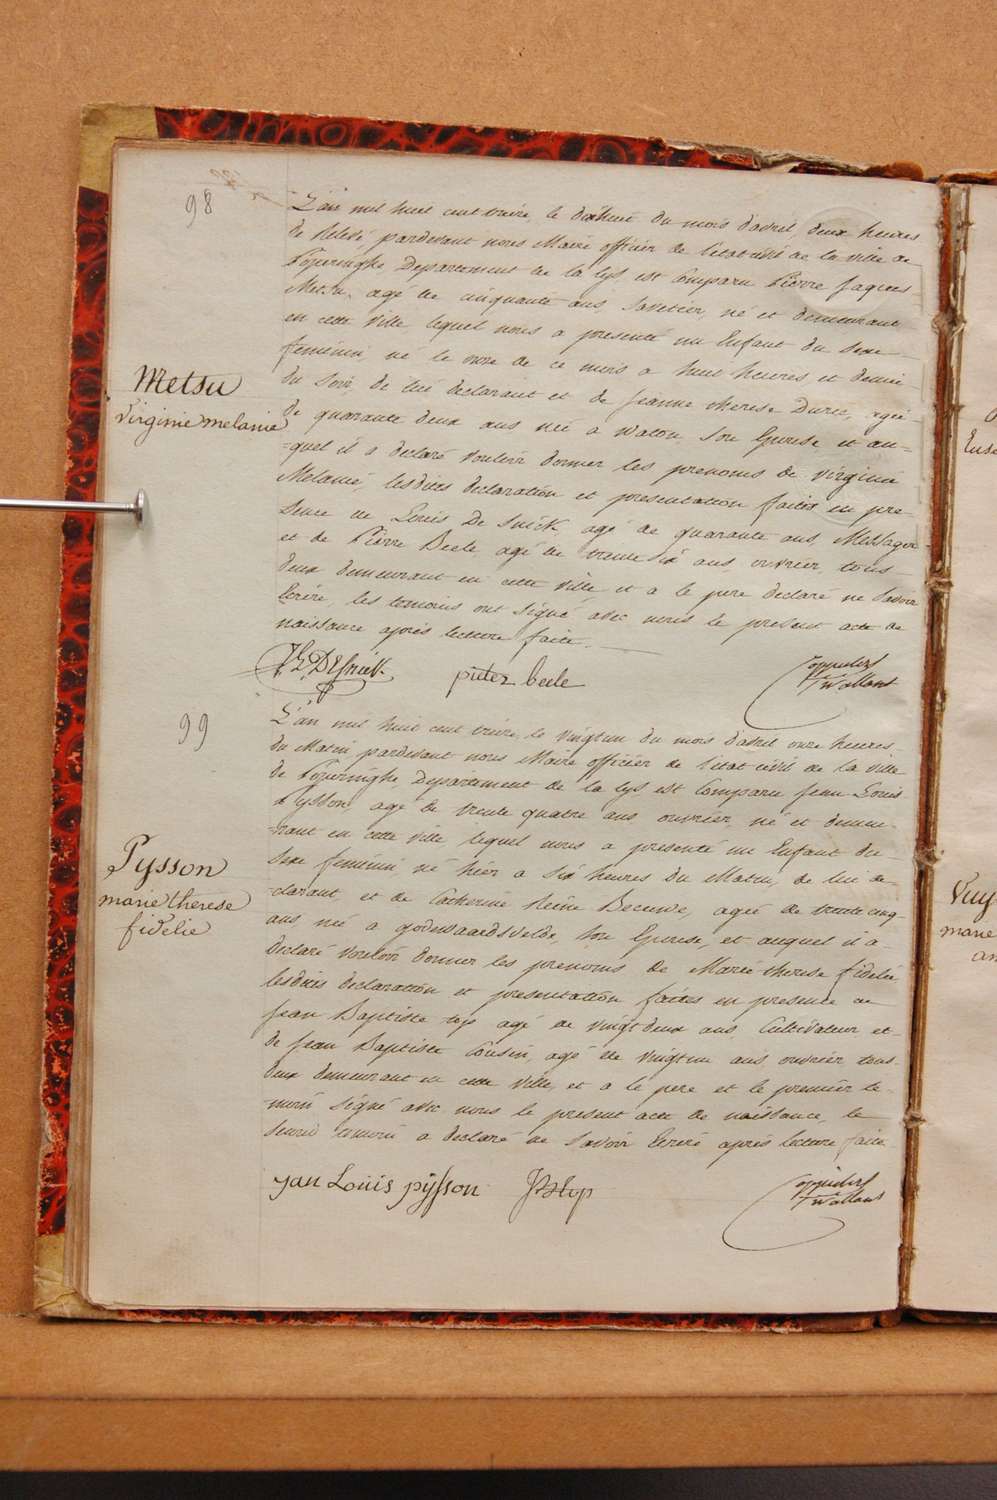 98
L'an mil huit cent treize, le dixhuit du mois d'avril, deux heures
de Relevé pardevant nous Maire officier de l'etat civil de la ville de
Poperinghe Departement de la Lys est Comparu Pierre Jaques
Metsu agé de cinquante ans, Savetier, né et demeurant
en cette ville lequel nous a presenté un Enfant du Sexe
feminin, né le onze de ce mois a huit heures et demie
Metsu
virginie melanie
du Soir, de lui declarant et de Jeanne therese Duree, agée
de quarante deux ans née a Watou, Son Epouse, et au-
=quel il a declaré vouloir donner les prenoms de virginie
Melanie, lesdites declaration et presentation faites en pre-
Sence de Louis De Snick, agé de quarante ans, Messager
et de Pierre Beele agé de trente six ans, ouvrier, tous
deux demeurant en cette ville et a le pere declaré ne Savoir
Ecrire, les temoins ont Signé avec nous le present acte de
naissance après lecture faite.
pieter beele
99
L'an mil huit cent treize, le vingt un du mois d'avril onze heures
du Matin pardevant nous Maire officier de l'etat civil de la ville
de Poperinghe, Departement de la Lys est Comparu Jean Louis
Pysson, agé de trente quatre ans ouvrier, né et demeu-
=rant en cette ville lequel nous a presenté un Enfant du
Pysson
marie therese
fidelie
Sexe feminin né hier a Six heures du Matin, de lui de-
-clarant, et de Catherine Reine Becuwe, agée de trente cinq
ans, née a godewaardsvelde, Son Epouse, et auquel il a
declaré vouloir donner les prenoms de Marie therese fidelie
lesdites declaration et presentation faites en presence de
Jean Baptiste top agé de vingt deux ans, Cultivateur et
de Jean Baptiste Cousin, agé de vingt un ans, ouvrier, tous
deux demeurant en cette ville, et a le pere et le premier te-
-moin Signé avec nous le present acte de naissance, le
Second temoin a declaré ne Savoir Ecrire après lecture faite.
jan Louis pysson JBtop